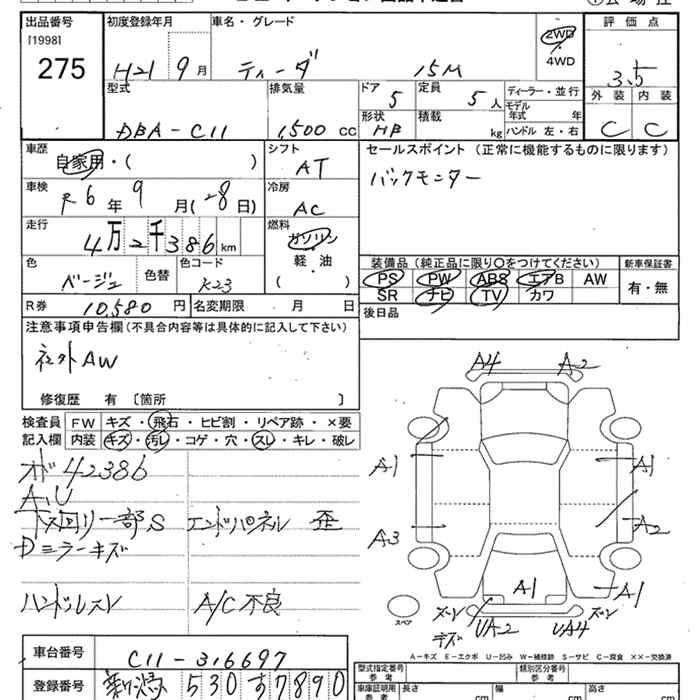 出品番号 初度登録年月 車名・グレード 評価点
[1998]
275 H21年9月 ティーダ 15M 2WD 3.5
4WD
型式 排気量 ドア 5 定員 5人 ディーラー・並行 外装 内装
モデル年式 年
DBA-C11 1,500 CC 形状 HB 積載 kg ハンドル 左・右 C C
車歴 シフト セールスポイント (正常に機能するものに限ります)
自家用・( ) AT バックモニター
車検 冷房
R6年9月(28日) AC
走行 燃料
4万2千386km ガソリン
軽・油
( )
色 色替 色コード 装備品 (純正品に限り○をつけてください) 新車保証書
ベージュ K23 PS PW ABS エアB AW 有・無
SR ナビ TV カワ
R券 10,580円 名変期限 月 日 後日品
注意事項申告欄 (不具合内容等は具体的に記入して下さい)
社外AW
修復歴 有 〔箇所 〕
検査員 FW キズ・飛石・ヒビ割・リペア跡・×要
記入欄 内装 キズ・汚レ・コゲ・穴・スレ・キレ・破レ
42386
A,U
下回り一部S エンドパネル 歪
Dミラーキズ
ハンドルスレ A/C不良
A4 A2
A1 A1
A3 A2
A1 A1
スペア UA2 UA4
A-キズ E-エクボ U-凹み W-補修跡 S-サビ C-腐食 XX-交換済
車台番号 C11-316697 型式指定番号 類別区分番号
登録番号 新潟 530 す 7890 車庫証明用参考 長さ cm 幅 cm 高さ cm